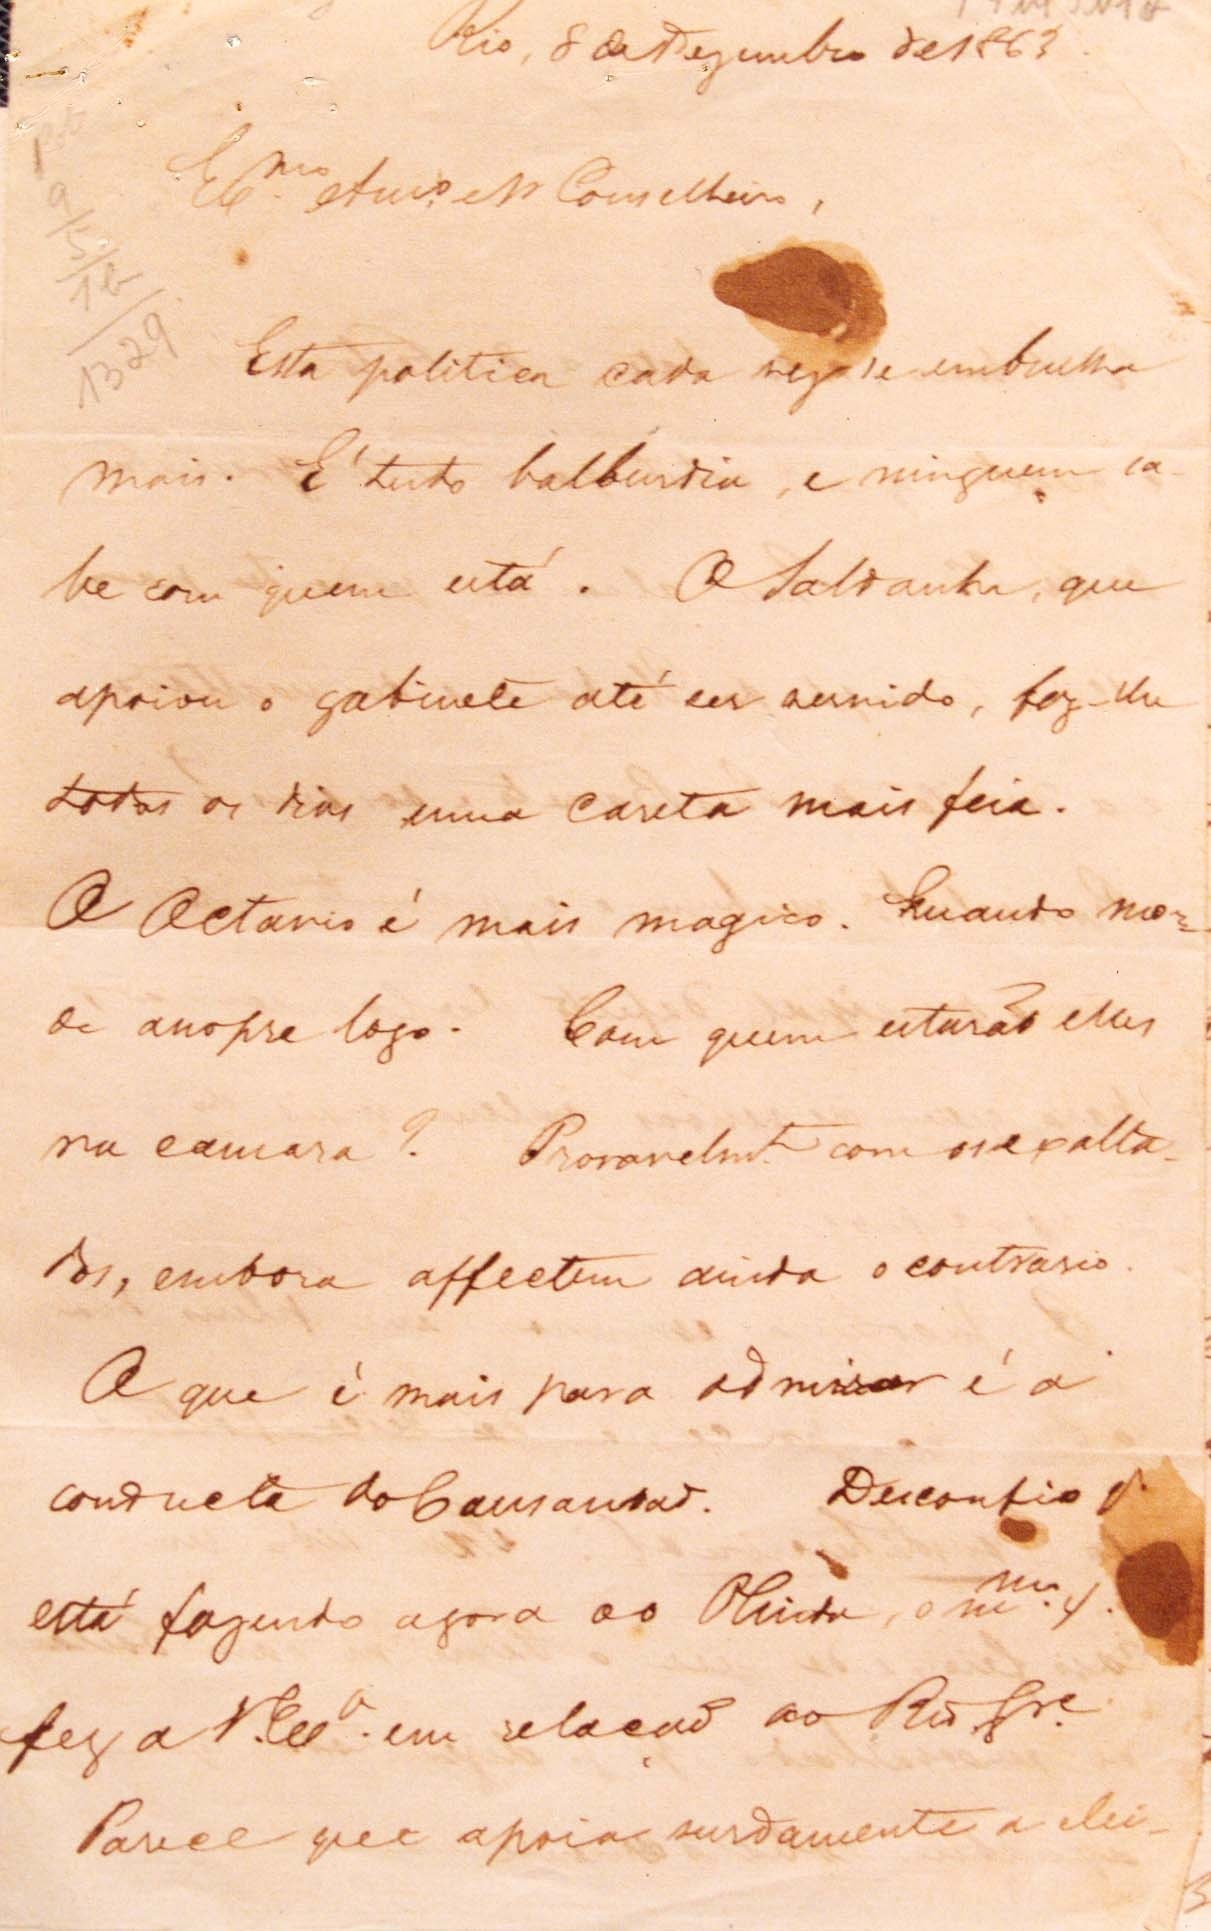 Rio, 8 de Dezembro de 1863.
Ex.mo Am.o e Sr Conselheiro,
9/5/16
1329
Esta politica cada vez se embrulha
mais. É tudo balburdia, e ninguem sa-
be com quem está. O Saldanha, que
apoiou o gabinete até ser servido, faz-lhe
todos os dias uma careta mais feia.
O Octavio é mais magico. Quando mor-
de assopra logo. Com quem estarão elles
na camara? Provavelmt. com os exalta-
dos, embora affectem ainda o contrario.
O que é mais para admirar é a
conducta do Cansansão. Desconfio q.
está fazendo agora ao Olinda, o mmo. q.
fez a V.Exa. em relação ao Rio Gre.
Parece que apoia surdamente a elei-